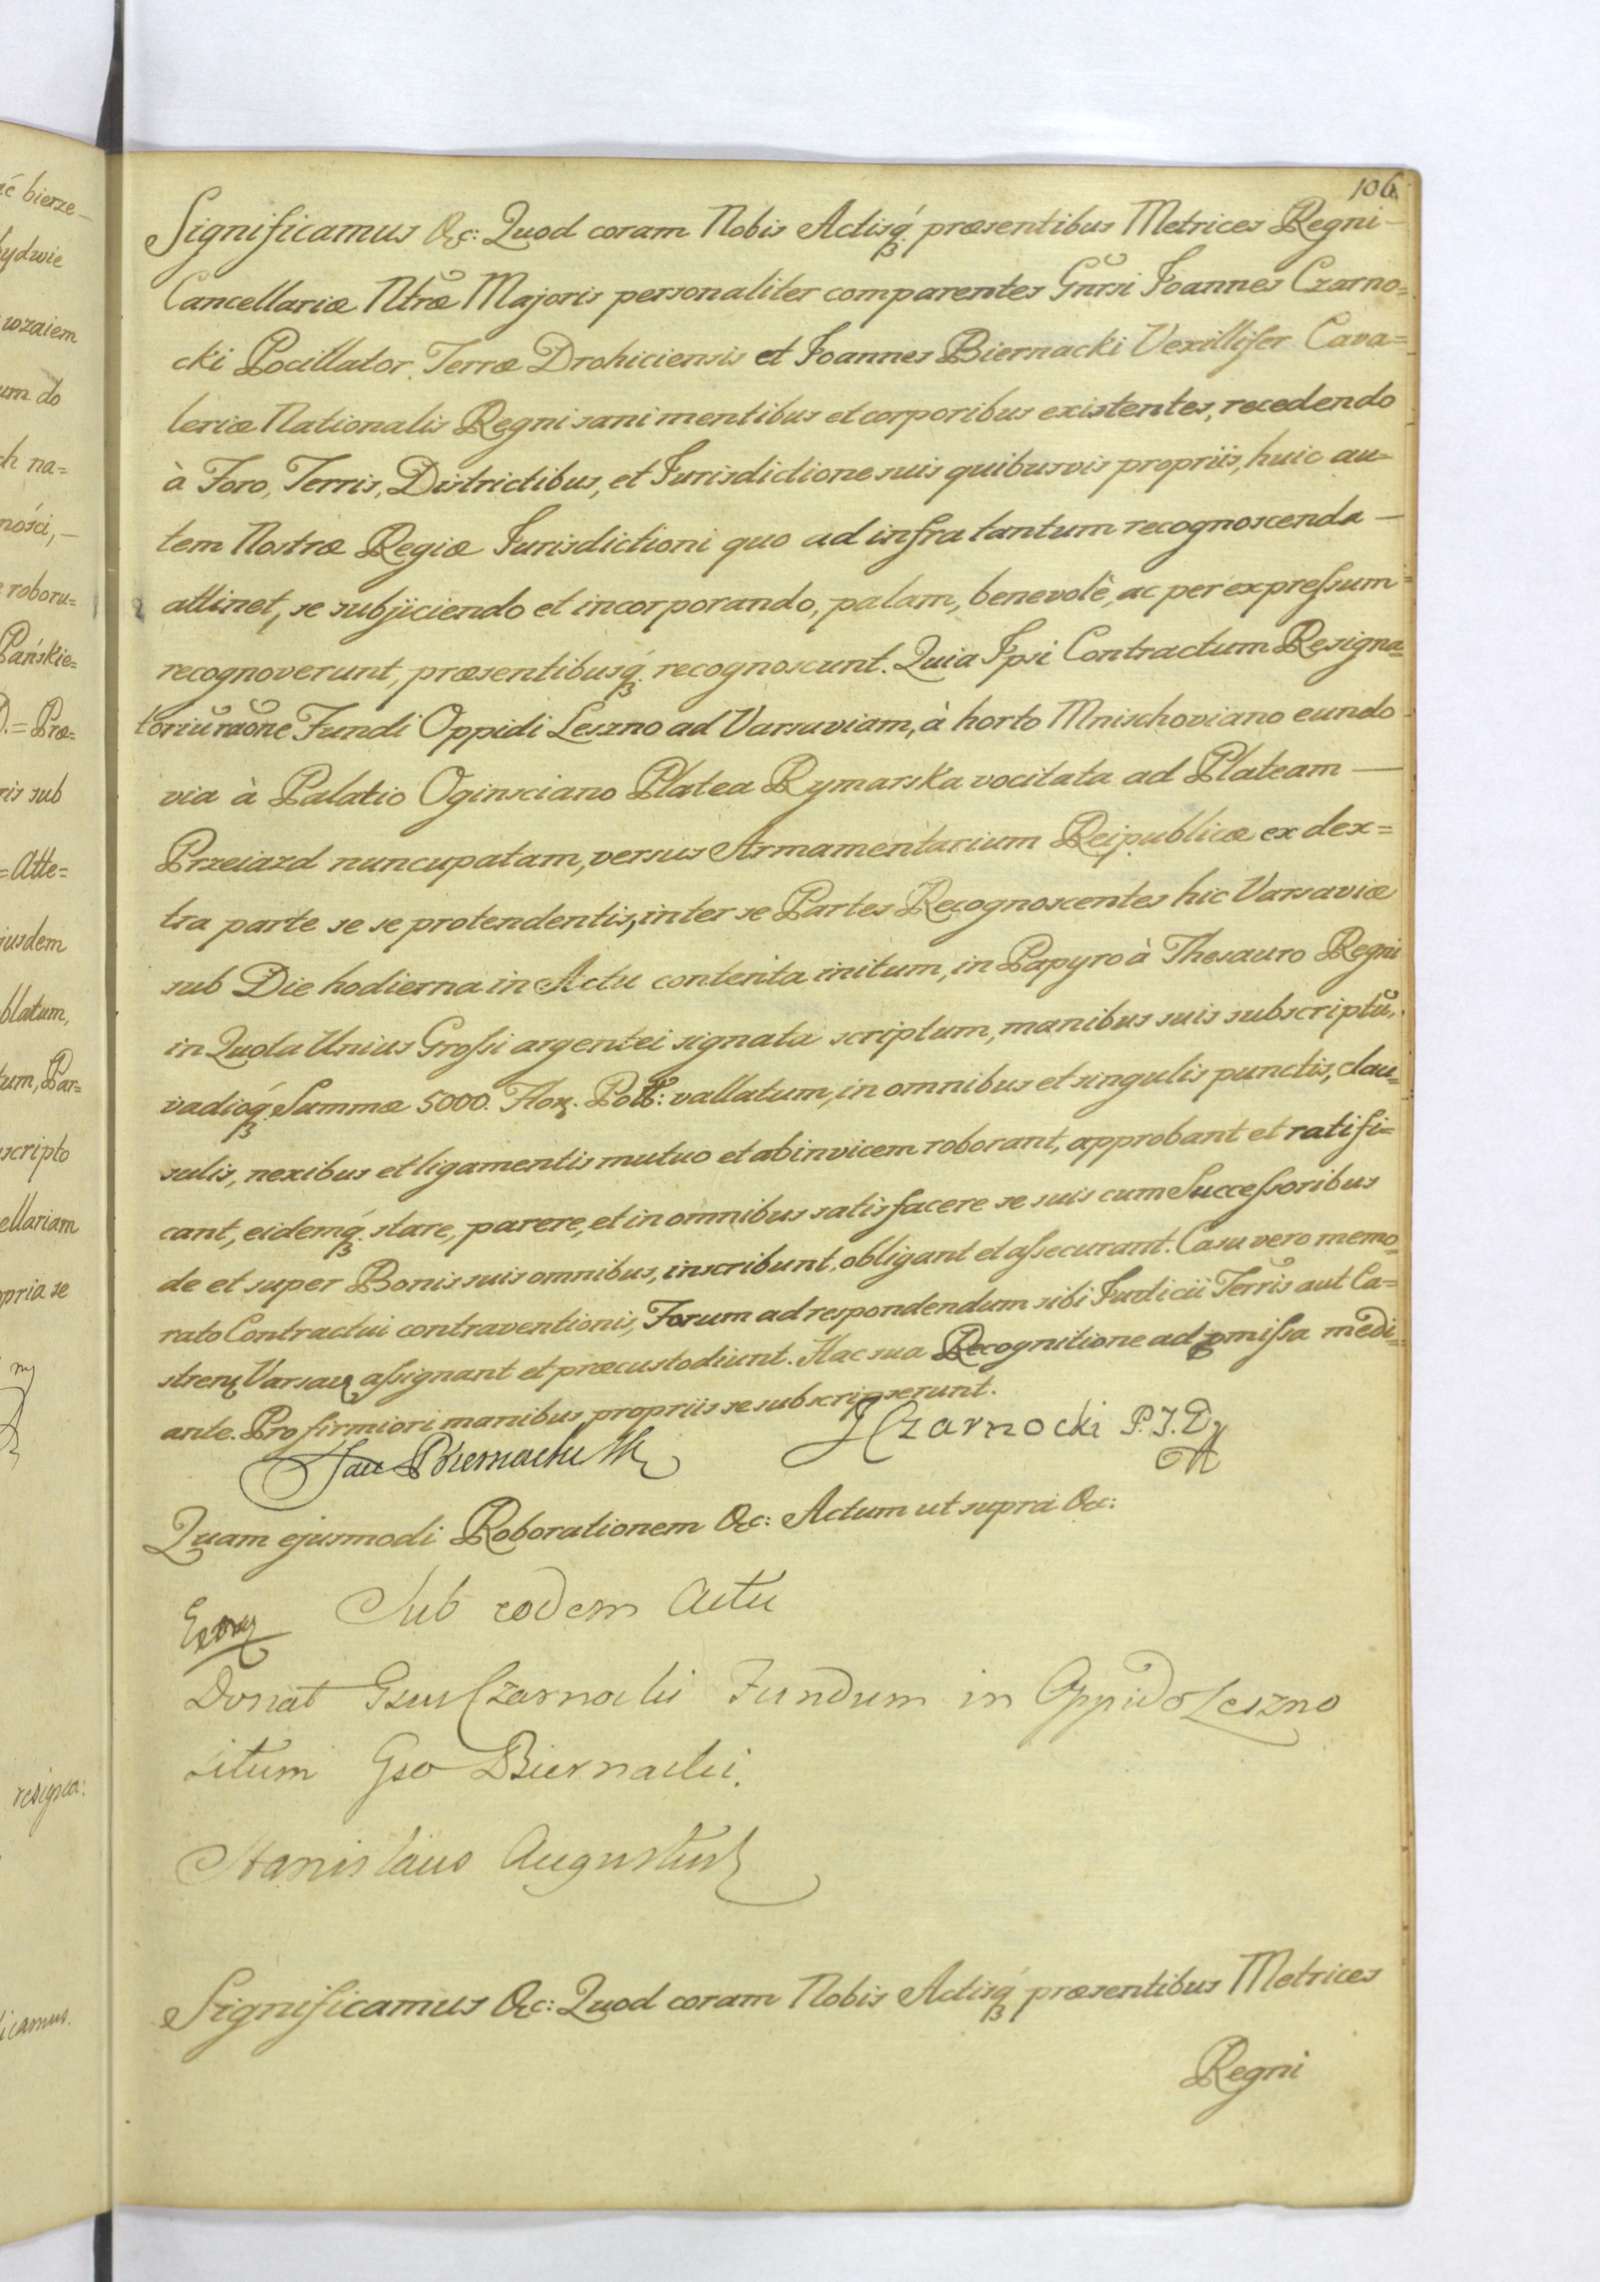 106
Significamus &c: Quod coram Nobis Actisq́ præsentibus Metrices Regni –
Cancellariæ Ntræ Majoris personaliter comparentes Gnrsi Joannes Czarno=
cki Pocillator Terræ Drohiciensis et Joannes Biernacki Vexillifer Cava=
leriæ Nationalis Regni sani mentibus et corporibus existentes, recedendo
à Foro, Terris, Districtibus, et Jurisdictione suis quibusvis propriis, huic au=
tem Nostræ Regiæ Jurisdictioni quo ad infra tantum recognoscenda –
attinet, se subjiciendo et incorporando, palam, benevolè, ac per expressum =
recognoverunt, præsentibusq́ recognoscunt. Quia Ipsi Contractum Resigna=
toriũ rãone Fundi Oppidi Leszno ad Varsaviam, à horto Mnischoviano eundo
via à Palatio Oginsciano Platea Rymarska vocitata ad Plateam —
Przeiazd nuncupatam, versus Armamentarium Reipublicæ ex dex=
tra parte se se protendentis, inter se Partes Recognoscentes hic Varsaviæ
sub Die hodierna in Actu contenta initum, in Papyro à Thesauro Regni
in Quota Unius Grossi argentei signata scriptum, manibus suis subscriptũ,
vadioq́ Summæ 5000. Flor. Poll: vallatum, in omnibus et singulis punctis, clau=
sulis, nexibus et ligamentis mutuo et abinvicem roborant, approbant et ratifi=
cant, eidemq́ stare, parere, et in omnibus satisfacere se suis cum Successoribus
de et super Bonis suis omnibus, inscribunt, obligant et assecurant. Casu vero memo=
rato Contractui contraventionis, Forum ad respondendum sibi Judicii Terris aut Ca=
stren Varsav assignant et præcustodiunt. Hac sua Recognitione ad pmissa medi=
ante. Pro firmiori manibus propriis se subscripserunt.
Jan Biernacki
JCzarnocki P.Z.D
Quam ejusmodi Roborationem &c: Actum ut supra &c:
Sub eodem Actu
Donat Gsus Czarnocki Fundum in Oppido Leszno
situm Gso Biernacki.
Stanislaus Augustus
Significamus &c: Quod coram Nobis Actisq́ præsentibus Metrices
Regni